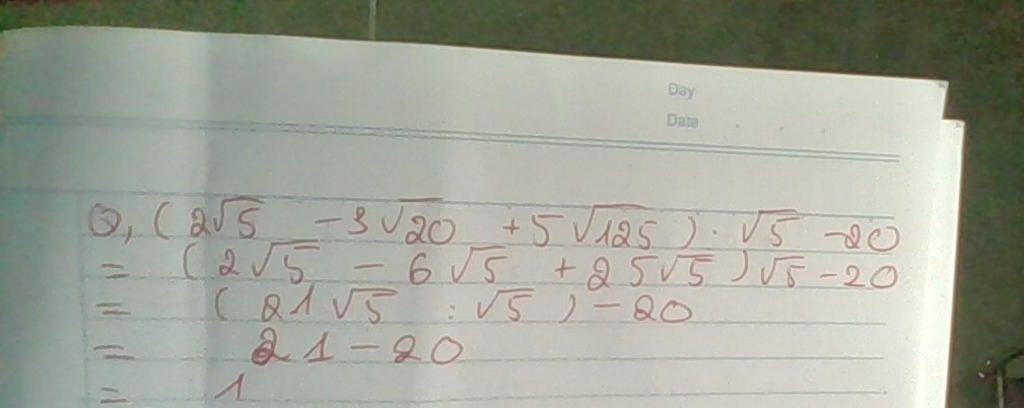 Day
Date
Q, (2√5 - 3√20 + 5√125) . √5 - 20
= (2√5 - 6√5 + 25√5)√5 - 20
= (21√5 : √5) - 20
= 21 - 20
= 1